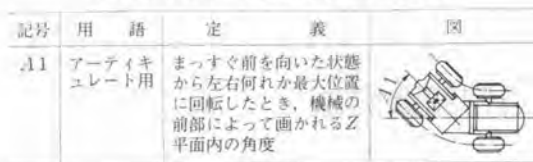 記号 用語 定義 図
A1 アーティキュレート用 まっすぐ前を向いた状態から左右何れか最大位置に回転したとき,機械の前部によって画かれるZ平面内の角度
A1